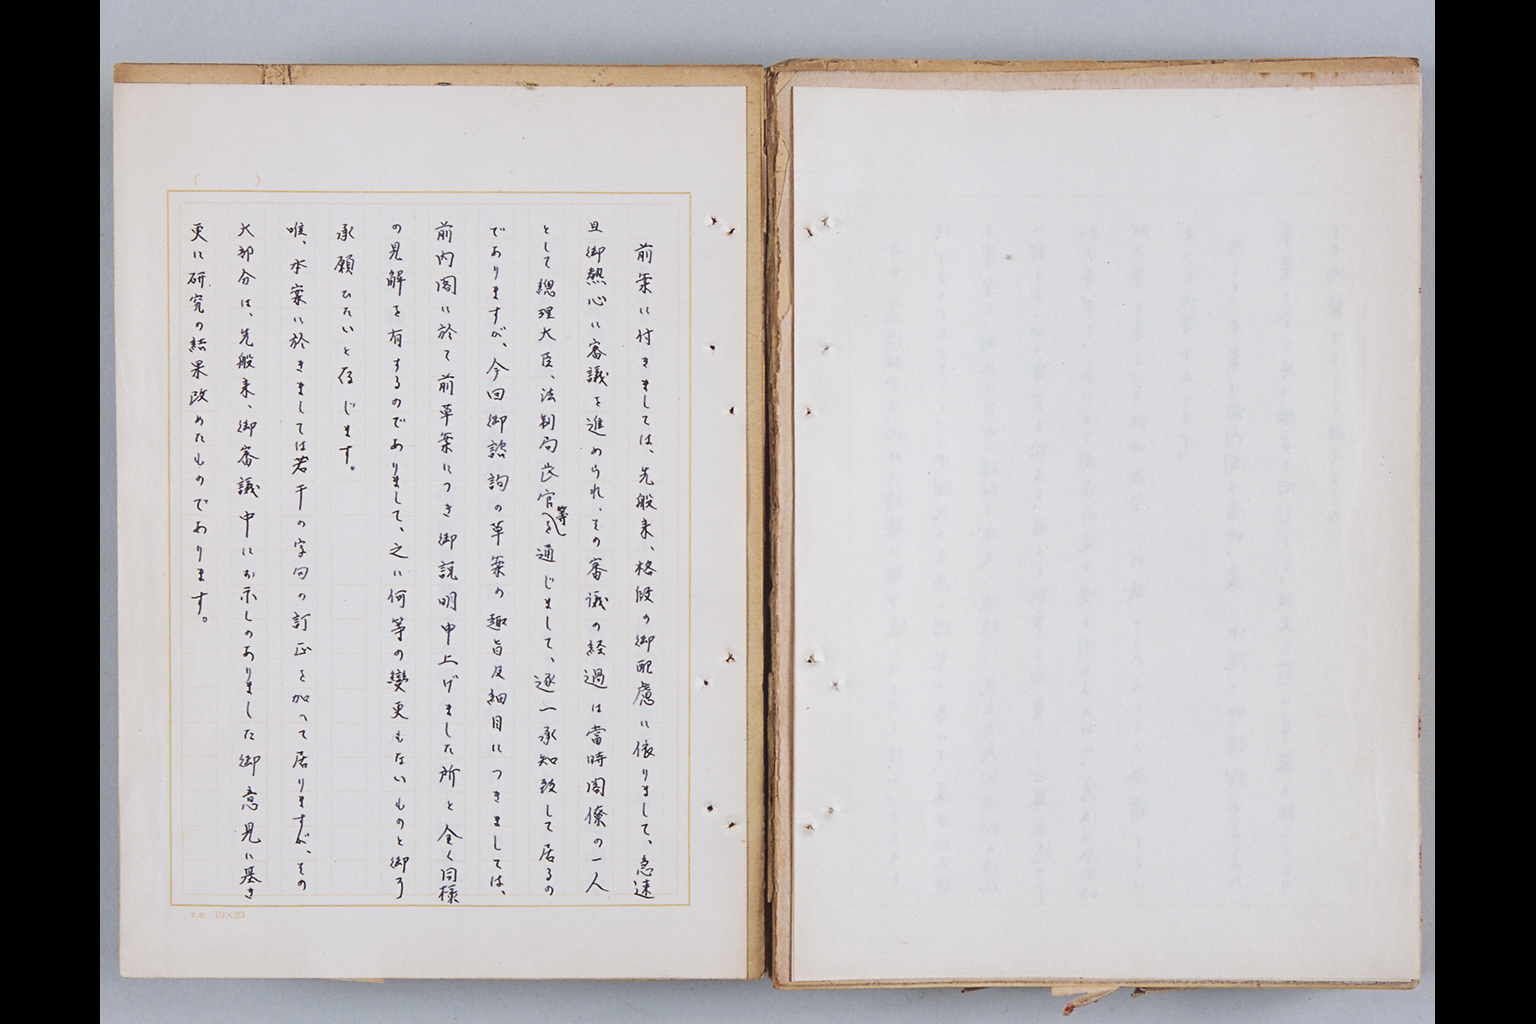 前案に付きましては、先般来、格段の御配慮に依りまして、急速
且御熱心に審議を進められ、その審議の経過は當時閣僚の一人
として總理大臣、法制局長官等を通じまして、逐一承知致して居るの
でありますが、今回御諮詢の草案の趣旨及細目につきましては、
前内閣に於て前草案につき御説明申上げました所と全く同様
の見解を有するのでありまして、之に何等の變更もないものと御
承願ひたいと存じます。
唯、本案に於きましては若干の字句の訂正を加へて居りますが、その
大部分は、先般来、御審議中にお示しのありました御意見に基き
更に研究の結果改めたものであります。
10×20